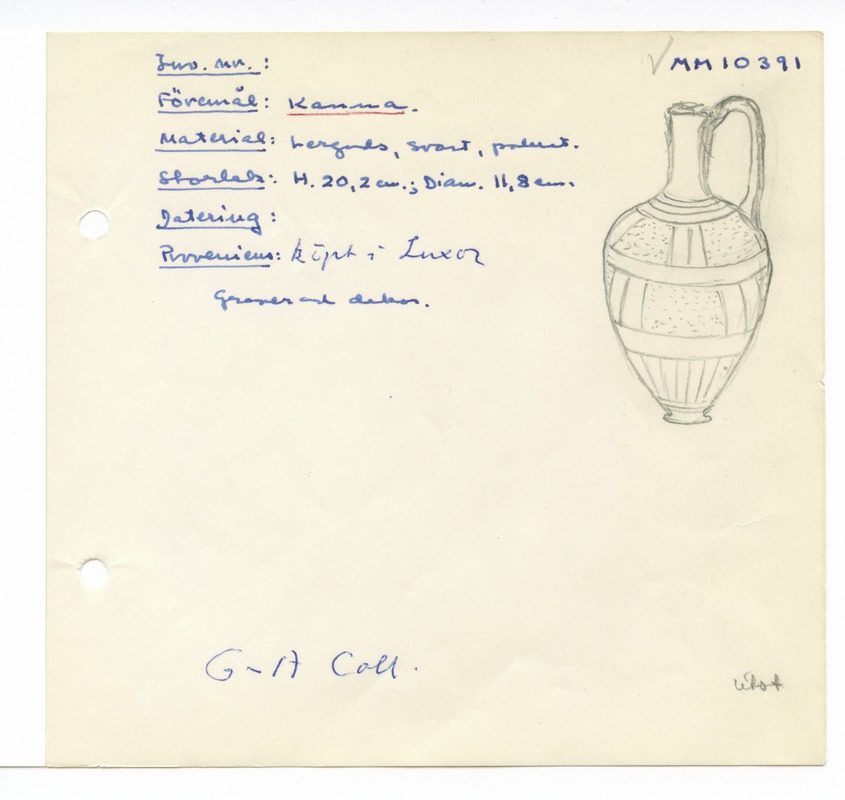 MM 10391
Inv. nr. :
Föremål: Kanna.
Material: Lergods, svart, polerat.
Storlek: H. 20,2 cm.; Diam. 11,8 cm.
Datering:
Proveniens: köpt i Luxor
Graverad dekor.
G-A Coll.
utst